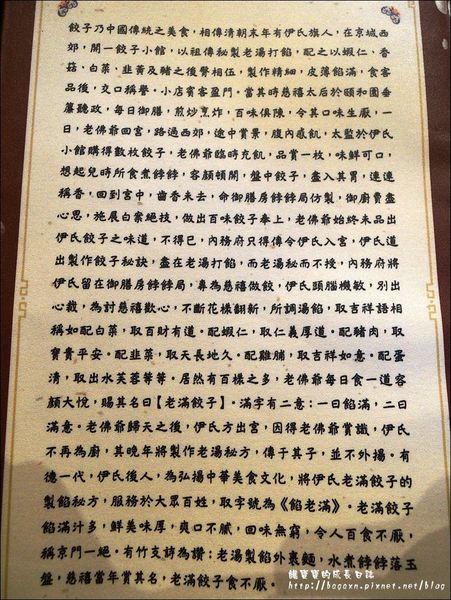 餃子乃中國傳統之美食，相傳清朝末年有伊氏旗人，在京城西
郊，開一餃子小館，以祖傳秘製老湯打餡，配之以蝦仁、香
菇、白菜、韭黃及豬之後臀相伍，製作精細，皮薄餡滿，食客
品後，交口稱譽。小店賓客盈門。當其時慈禧太后於頤和園垂
簾聽政，每日御膳，煎炒烹炸，百味俱陳，令其口味生厭，一
日，老佛爺回宮，路過西郊，途中賞景，腹內感飢，太監於伊氏
小館購得數枚餃子，老佛爺臨時充飢，品嘗一枚，味鮮可口，
想起兒時所食煮餑餑，容顏頓開，盤中餃子，盡入其胃，連連
稱香，回到宮中，齒香未去，命御膳房餑餑局仿製，御廚費盡
心思，施展白案絕技，做出百味餃子奉上，老佛爺始終未品出
伊氏餃子之味道，不得已，內務府只得傳令伊氏入宮，伊氏道
出製作餃子秘訣，盡在老湯打餡，而老湯秘而不授，內務府將
伊氏留在御膳房餑餑局，專為慈禧做餃，伊氏頭腦機敏，別出
心裁，為討慈禧歡心，不斷花樣翻新，所調湯餡，取吉祥語相
稱如配白菜，取百財有道。配蝦仁，取仁義厚道。配豬肉，取
寶貴平安。配韭菜，取天長地久。配雞脯，取吉祥如意。配蛋
清，取出水芙蓉等等。居然有百樣之多，老佛爺每日食一道容
顏大悅，賜其名曰【老滿餃子】。滿字有二意：一曰餡滿，二曰
滿意。老佛爺歸天之後，伊氏方出宮，因得老佛爺賞識，伊氏
不再為廚，其晚年將製作老湯秘方，傳于其子，並不外揚。有
德一代，伊氏後人，為弘揚中華美食文化，將伊氏老滿餃子的
製餡秘方，服務於大眾百姓，取字號為《餡老滿》。老滿餃子
餡滿汁多，鮮美味厚，爽口不膩，回味無窮，令人百食不厭，
稱京門一絕。有竹支詩為讚：老湯製餡外裹麵，水煮餑餑落玉
盤，慈禧當年賞其名，老滿餃子食不厭。
熊寶寶的成長日誌
http://bogoxn.pixnet.net/blog